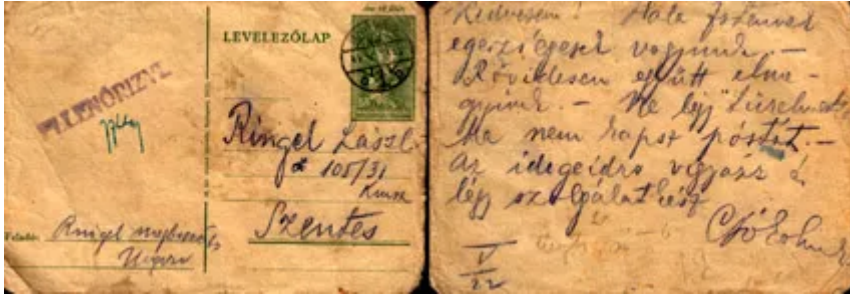 LEVELEZŐLAP
ELLENŐRIZVE
Ringel László
105/31
Szentes
Feladó: Ringel
Kedvesem! Hála Istennek
egészségesek vagyunk. –
Rövidesen együtt elme-
gyünk. – Ne légy türelmetlen
ha nem kapsz póstát. –
Az idegeidre vigyázz é
légy szolgálatkész
Csókolnak
V
22